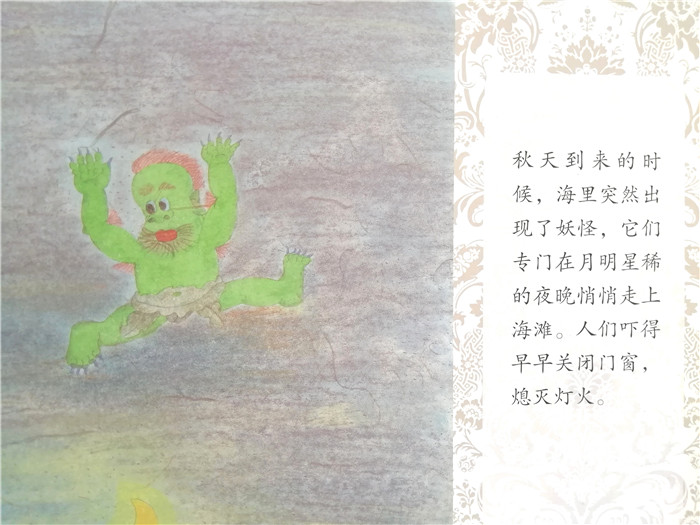 秋天到来的时
候，海里突然出
现了妖怪，它们
专门在月明星稀
的夜晚悄悄走上
海滩。人们吓得
早早关闭门窗，
熄灭灯火。